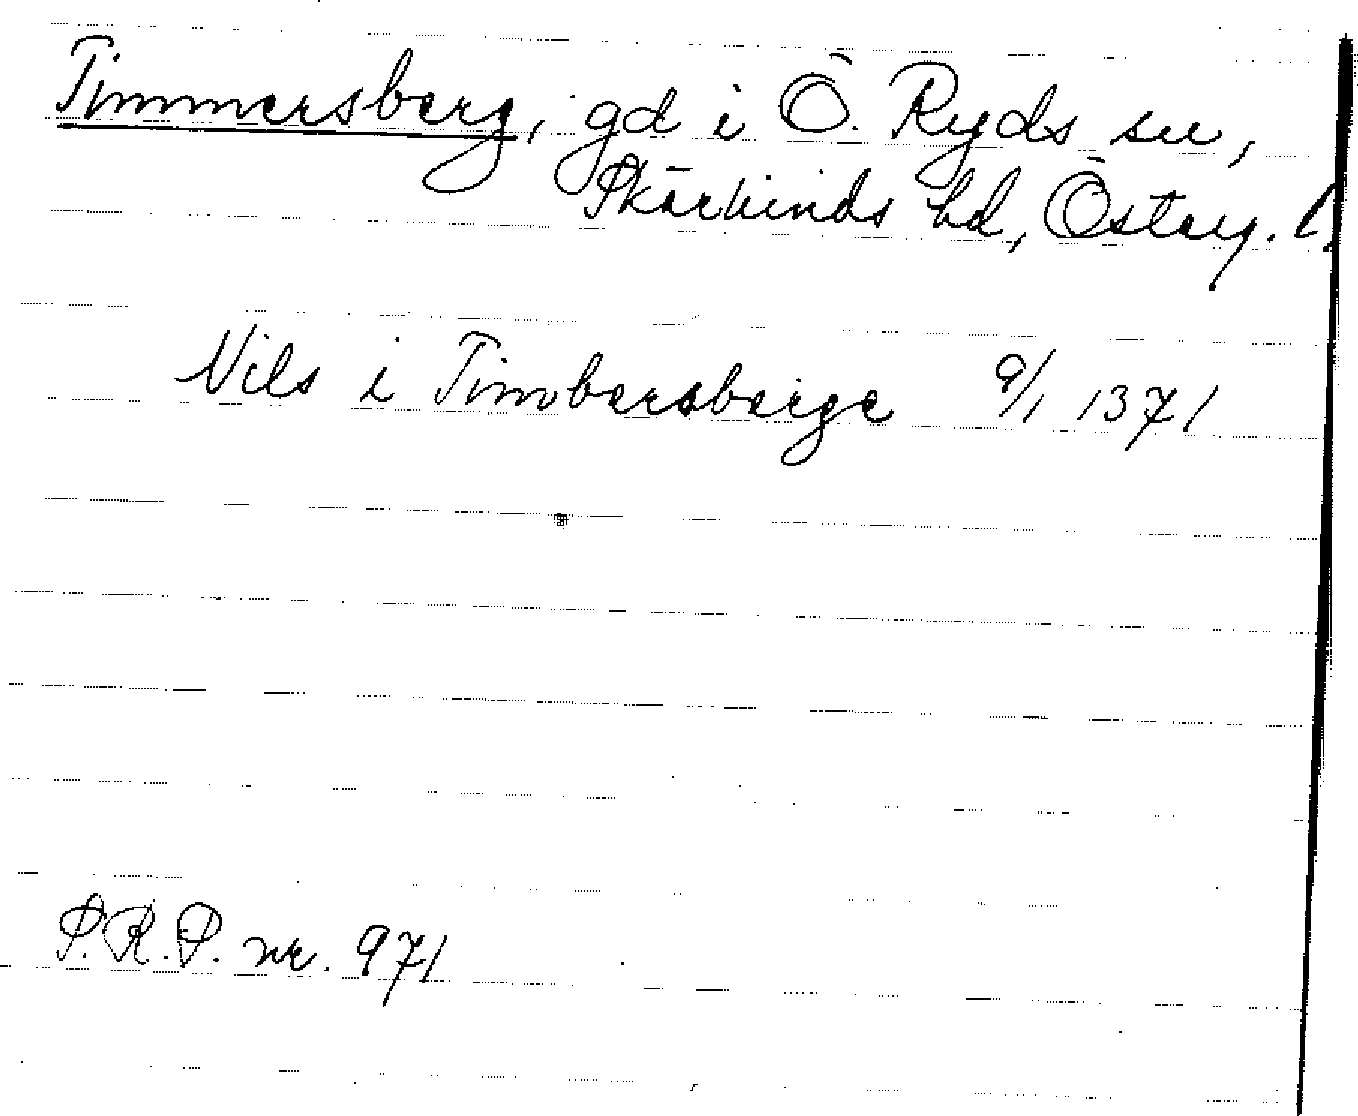 Timmersberg, gd i Ö. Ryds sn,
Skärkinds hd, Österg. l.
Nils i Timbersberge 9/1 1371
S.R.P. nr. 971